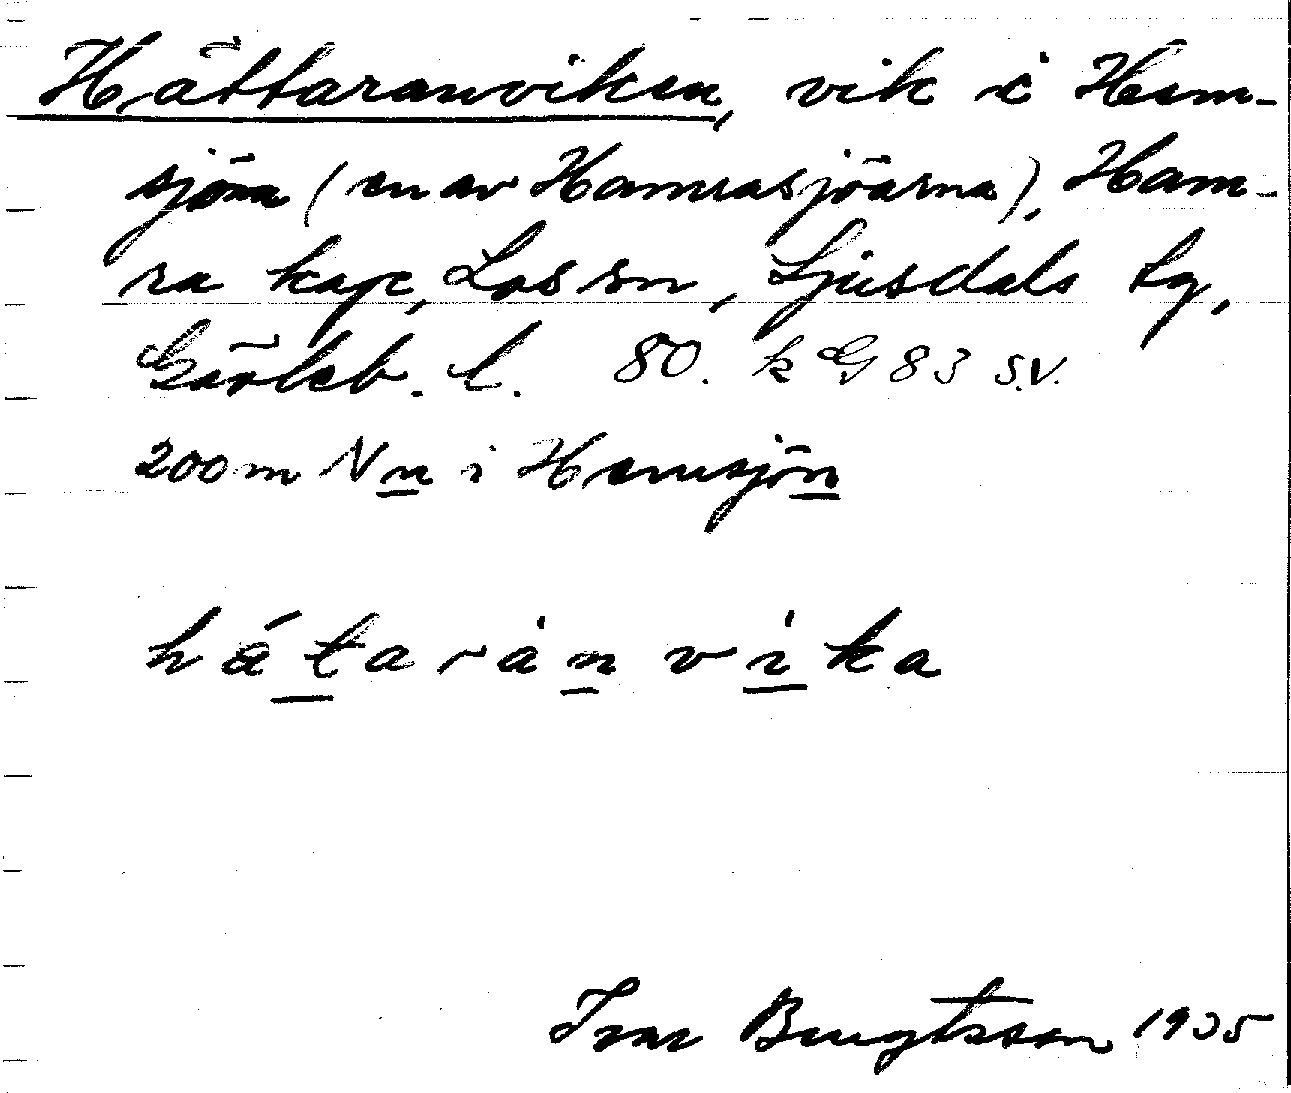 Hättaranviken, vik i Hem-
sjön (en av Hamrasjöarna), Ham-
ra kap, Los sn, Ljusdals tg,
Gävleb. l. 80. k G 83 s.v.
200 m N n i Hemsjön
hátaránvika
Ivar Bengtsson 1935